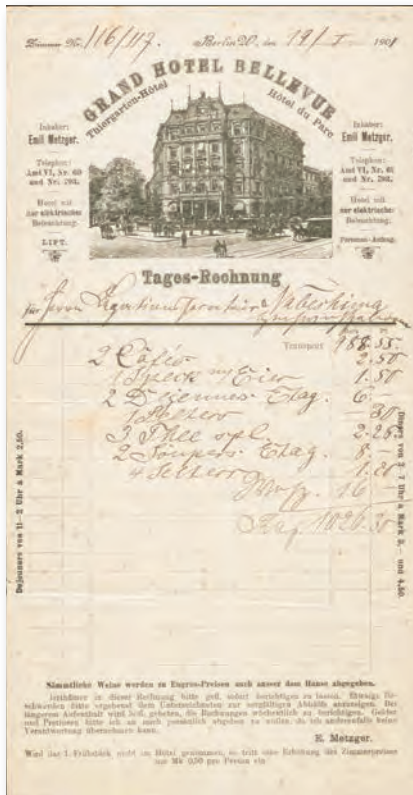 Zimmer Nr. 116/117. Berlin W., den 19/I 1901
GRAND HOTEL BELLEVUE
Thiergarten-Hôtel Hôtel du Parc
Inhaber:
Emil Metzger.
Telephon:
Amt VI, Nr. 60
und Nr. 293.
Hotel mit
nur elektrischer
Beleuchtung.
LIFT.
Inhaber:
Emil Metzger.
Telephon:
Hotel mit
nur elektrischer
Beleuchtung.
Personen-Aufzug.
Tages-Rechnung
für Herrn Legationssecretair Naberhima
Transport 988.55.
2 Cafés 2.50
1 Speck m/ Eier 1.50
2 Dejeuners Etag. 6.
1 Selters – 30
3 Thee spl. 2.25
2 Soupers Etag. 8.–
4 Selters 1.20
16 –
1026.30
Dejeuners von 11–2 Uhr à Mark 2,50.
Diners von 2–7 Uhr à Mark 3,– und 4,50.
Sämmtliche Weine werden zu Engros-Preisen auch ausser dem Hause abgegeben.
Irrthümer in dieser Rechnung bitte gefl. sofort berichtigen zu lassen. Etwaige Be-
schwerden bitte ergebenst dem Unterzeichneten zur sorgfältigen Abhülfe anzuzeigen. Bei
längerem Aufenthalt wird gebeten, die Rechnungen wöchentlich zu berichtigen. Gelder
und Pretiosen bitte ich an mich persönlich abgeben zu wollen, da ich anderenfalls keine
Verantwortung übernehmen kann.
E. Metzger.
Wird das I. Frühstück nicht im Hôtel genommen, so tritt eine Erhöhung des Zimmerpreises
um Mk 0,50 pro Person ein